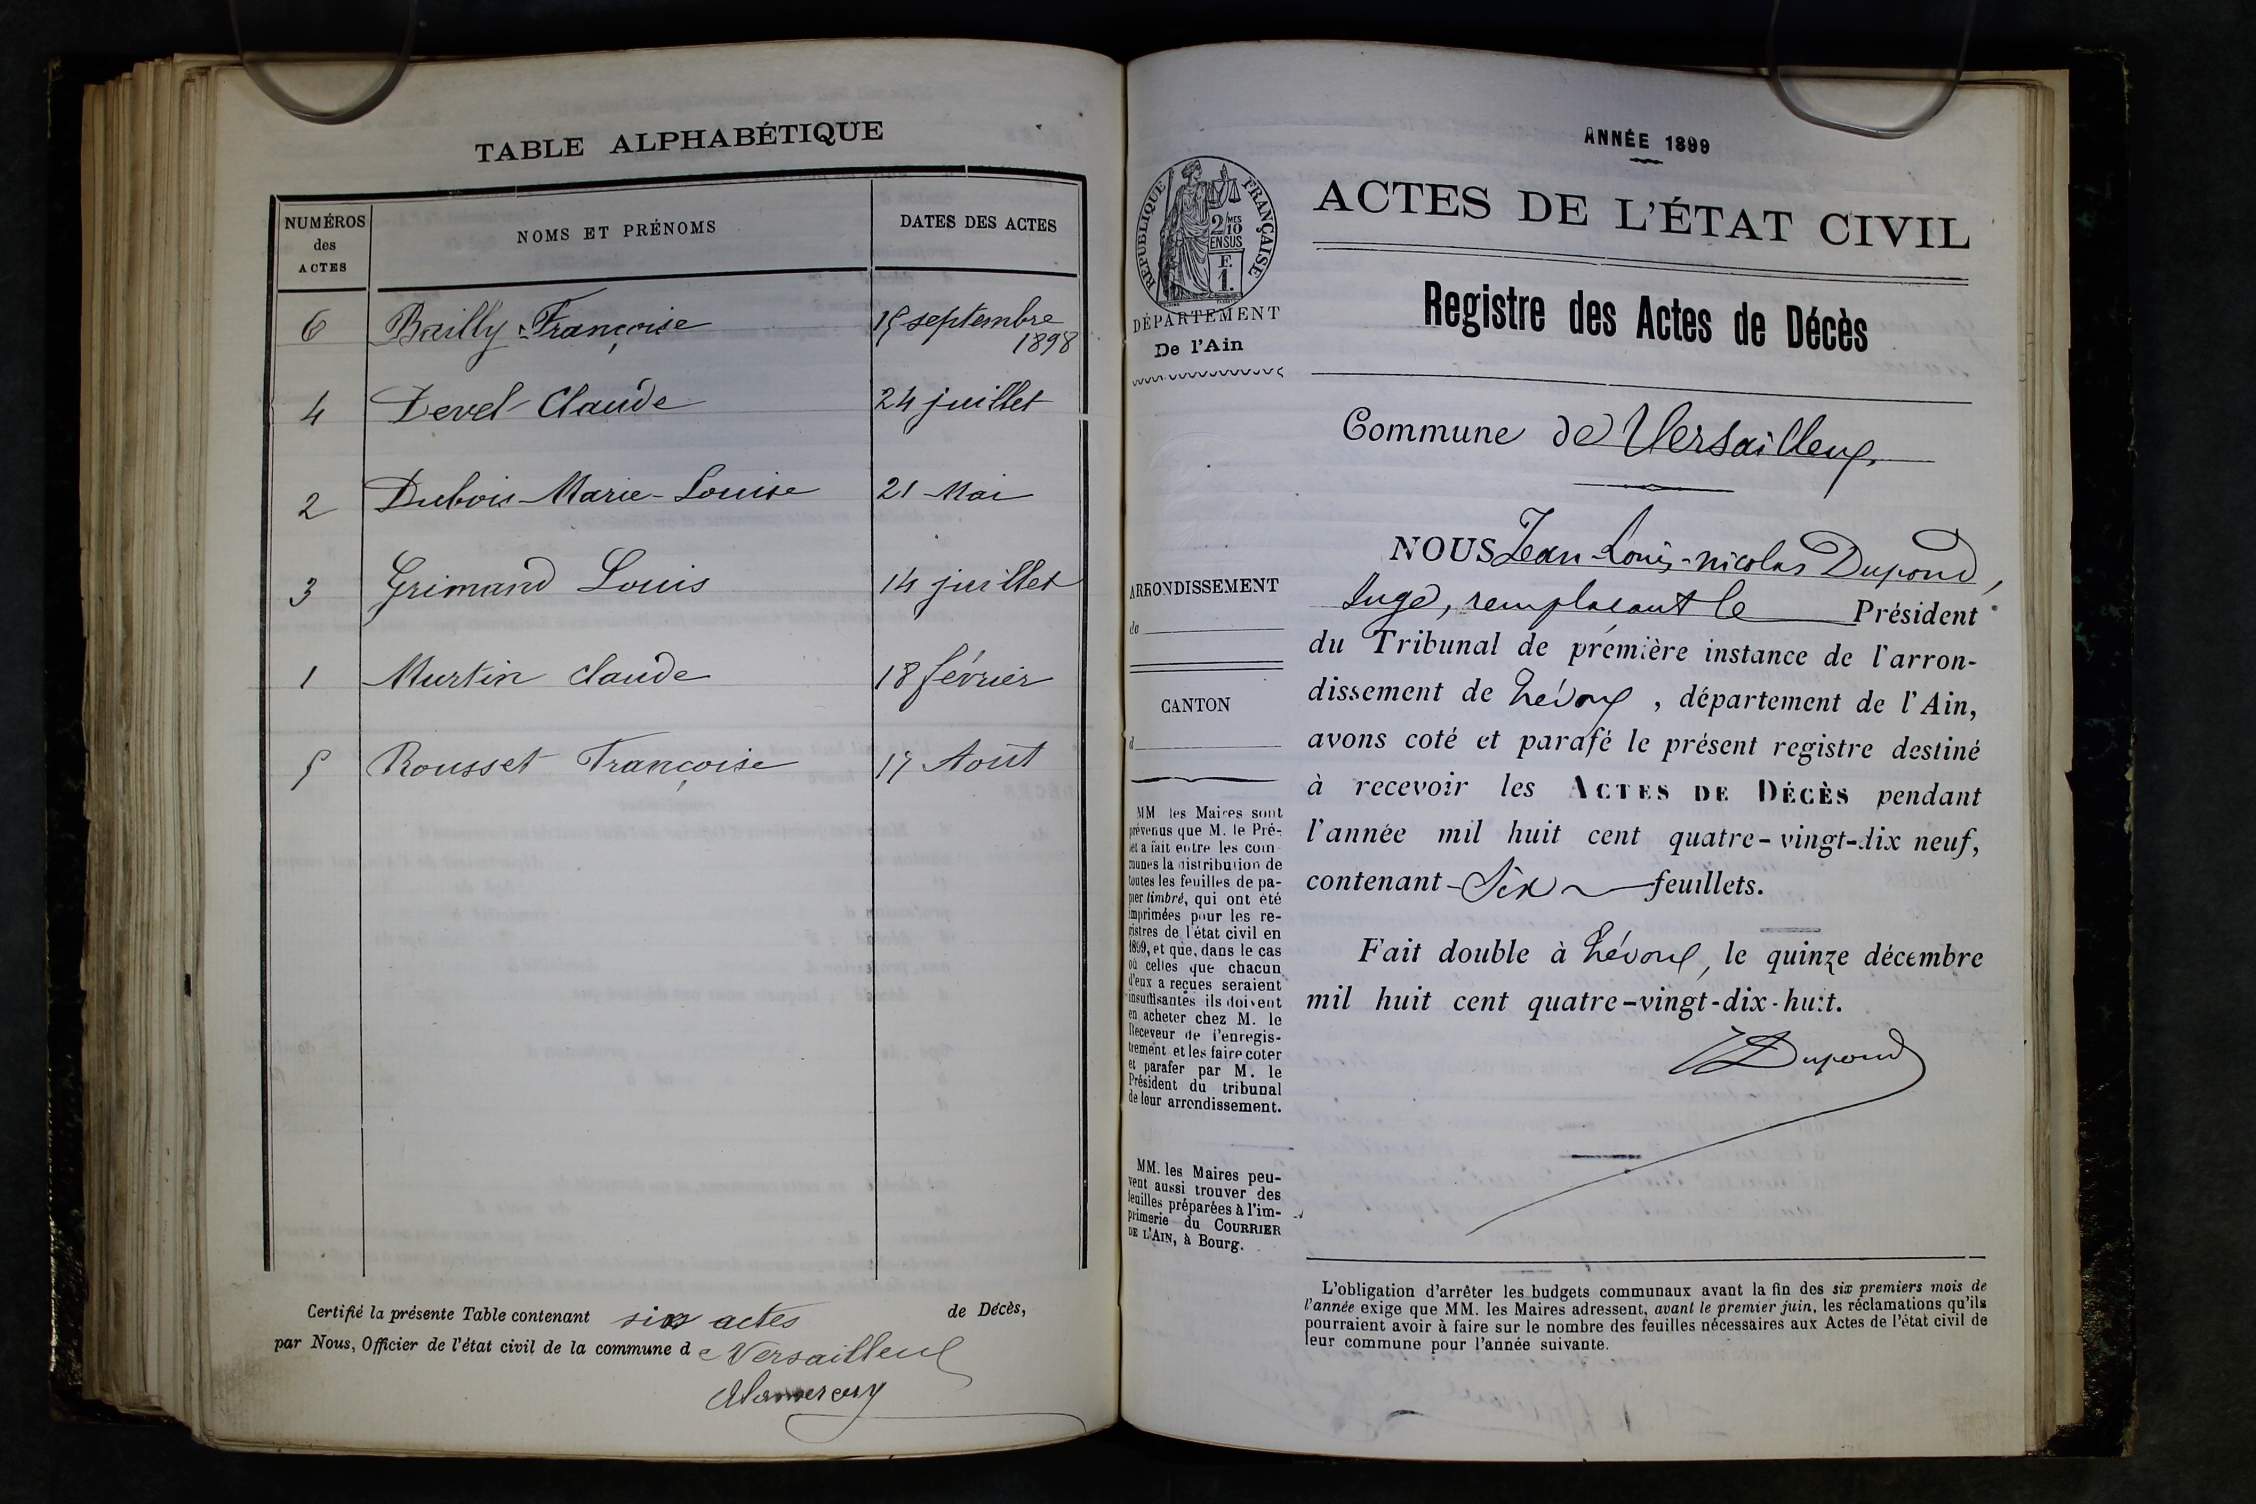 TABLE ALPHABÉTIQUE
NUMÉROS
des
ACTES
NOMS ET PRÉNOMS
DATES DES ACTES
6 Bailly Françoise 15 septembre
1898
4 Devel Claude 24 juillet
2 Dubois Marie-Louise 21 Mai
3 Grimand Louis 14 juillet
1 Murtin Claude 18 février
5 Rousset Françoise 17 Août
Certifié la présente Table contenant six actes de Décès,
par Nous, Officier de l'état civil de la commune de Versailleux
ANNÉE 1899
RÉPUBLIQUE FRANÇAISE
2/10 MES
EN SUS
F.
1.
DÉPARTEMENT
De l'Ain
ACTES DE L'ÉTAT CIVIL
Registre des Actes de Décès
Commune de Versailleux
NOUS Jean-Louis-nicolas Dupond,
Juge, remplacant le Président
du Tribunal de première instance de l'arron-
dissement de Trévoux, département de l'Ain,
avons coté et parafé le présent registre destiné
à recevoir les ACTES DE DÉCÈS pendant
l'année mil huit cent quatre-vingt-dix neuf,
contenant Six feuillets.
Fait double à Trévoux, le quinze décembre
mil huit cent quatre-vingt-dix-huit.
Dupond
ARRONDISSEMENT
de
CANTON
d
MM les Maires sont
prévenus que M. le Pré-
fet a fait entre les com-
munes la distribution de
toutes les feuilles de pa-
pier timbré, qui ont été
imprimées pour les re-
gistres de l'état civil en
1899, et que, dans le cas
où celles que chacun
d'eux a reçues seraient
insuffisantes ils doivent
en acheter chez M. le
Receveur de l'enregis-
trement et les faire coter
et parafer par M. le
Président du tribunal
de leur arrondissement.
MM. les Maires peu-
vent aussi trouver des
feuilles préparées à l'im-
primerie du COURRIER
DE L'AIN, à Bourg.
L'obligation d'arrêter les budgets communaux avant la fin des six premiers mois de
l'année exige que MM. les Maires adressent, avant le premier juin, les réclamations qu'ils
pourraient avoir à faire sur le nombre des feuilles nécessaires aux Actes de l'état civil de
leur commune pour l'année suivante.